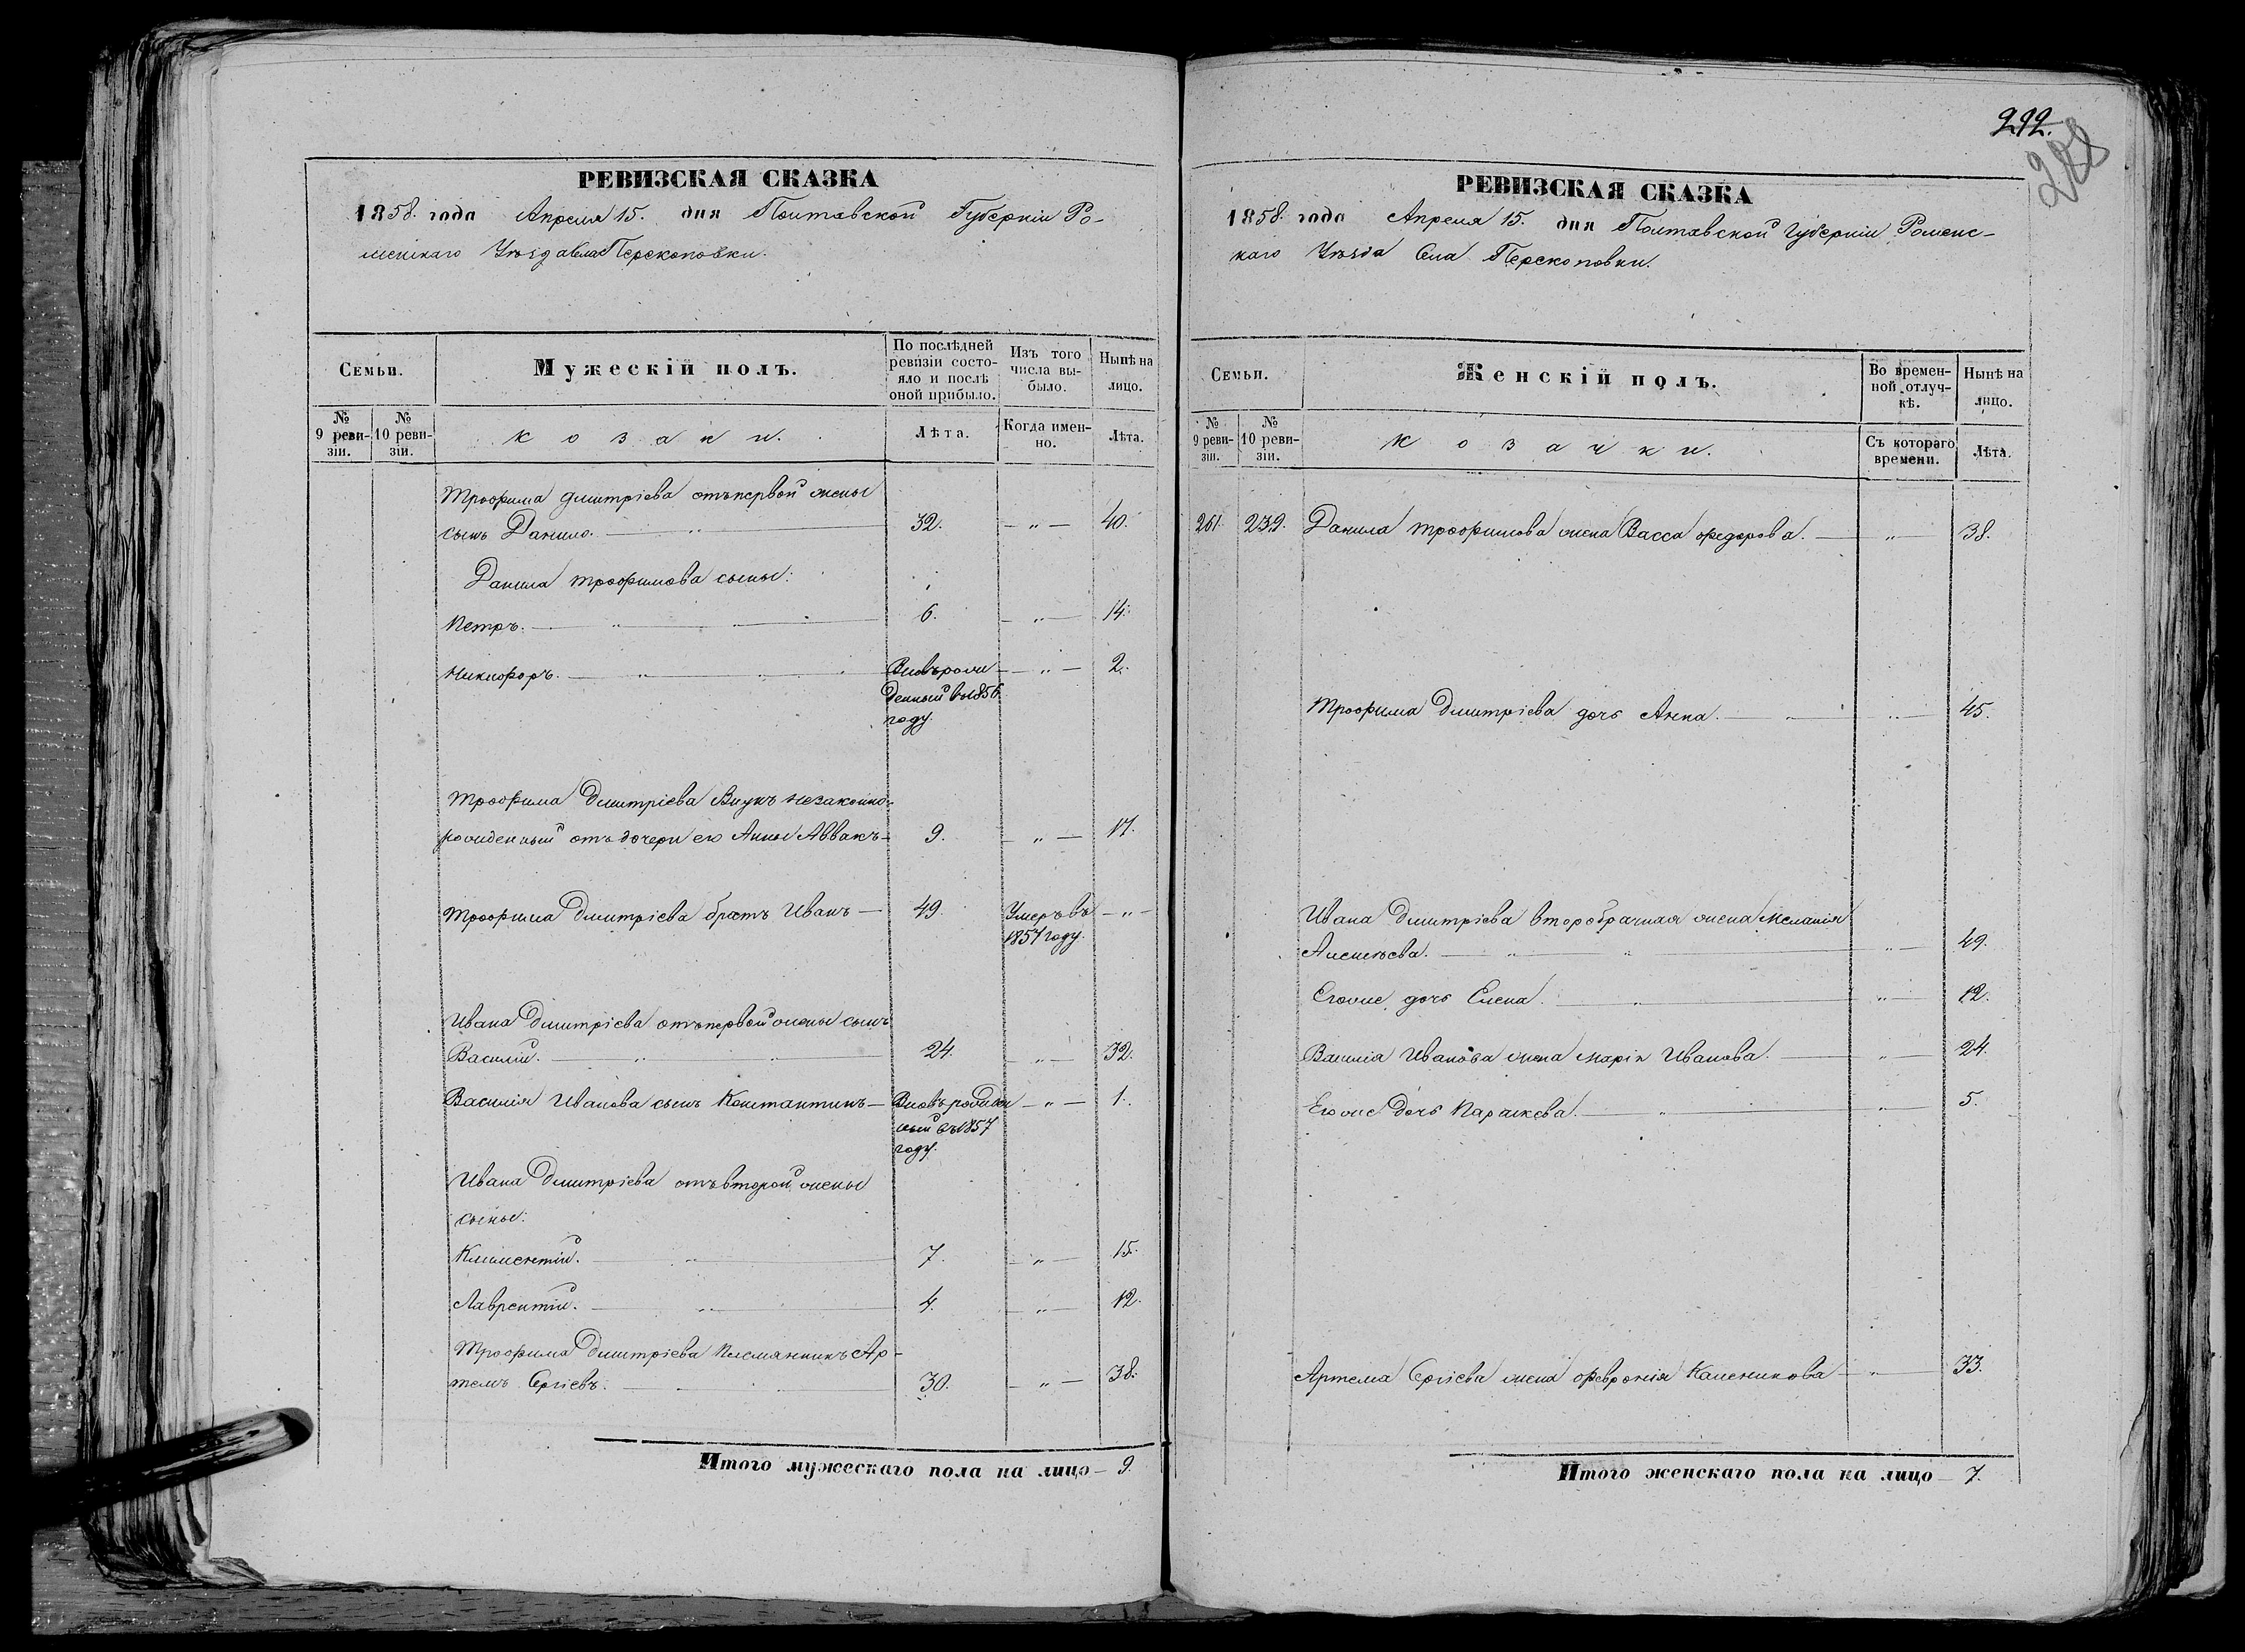 РЕВИЗСКАЯ СКАЗКА
1858. года Апреля 15. дня Полтавской Губерніи Ро-
менскаго Уѣзда села Перекоповки.
Семьи.
Мужескій полъ.
По послѣдней ревизіи состо-
яло и послѣ
оной прибыло.
Изъ того
числа вы-
было.
Нынѣ на
лицо.
№
9 реви-
зіи.
№
10 реви-
зіи.
козаки.
Лѣта.
Когда имен-
но.
Лѣта.
Трофима Дмитріева отъ первой жены
сынъ Данило. — " — 32. — " — 40.
Данила Трофимова сыны:
Петръ. — " — 6. — " — 14.
Никифоръ. — " — Вновь рож — " — 2.
денный въ 1856.
году.
Трофима Дмитріева внукъ незаконно-
рожденный отъ дочери его Анны Аввакъ — 9. — " — 17.
Трофима Дмитріева братъ Иванъ — 49. Умеръ въ — " —
1857 году.
Ивана Дмитріева отъ первой жены сынъ
Василій. — " — 24. — " — 32.
Василія Иванова сынъ Константинъ — Вновь рожден — " — 1.
ный въ 1857
году.
Ивана Дмитріева отъ второй жены
сыны:
Климентій. — " — 7. — " — 15.
Лаврентій. — " — 4. — " — 12.
Трофима Дмитріева племянникъ Ар-
темъ Сергіевъ. — 30. — " — 38.
Итого мужескаго пола на лицо — 9.
292.
288
РЕВИЗСКАЯ СКАЗКА
1858. года Апреля 15. дня Полтавской Губерніи Роменс-
каго Уѣзда села Перекоповки.
Семьи.
Женскій полъ.
Во времен-
ной отлуч-
кѣ.
Нынѣ на
лицо.
№
9 реви-
зіи.
№
10 реви-
зіи.
козачки.
Съ котораго
времени.
Лѣта.
261. 239. Данила Трофимова жена Васса Федорова. — " — 38.
Трофима Дмитріева дочь Анна. — " — 45.
Ивана Дмитріева второбрачная жена Меланія
Алексѣева. — " — 49.
Егоже дочь Елена. — " — 12.
Василія Иванова жена Марія Иванова. — " — 24.
Егоже дочь Параскева. — " — 5.
Артема Сергіева жена Февронія — " — 33.
Итого женскаго пола на лицо — 7.